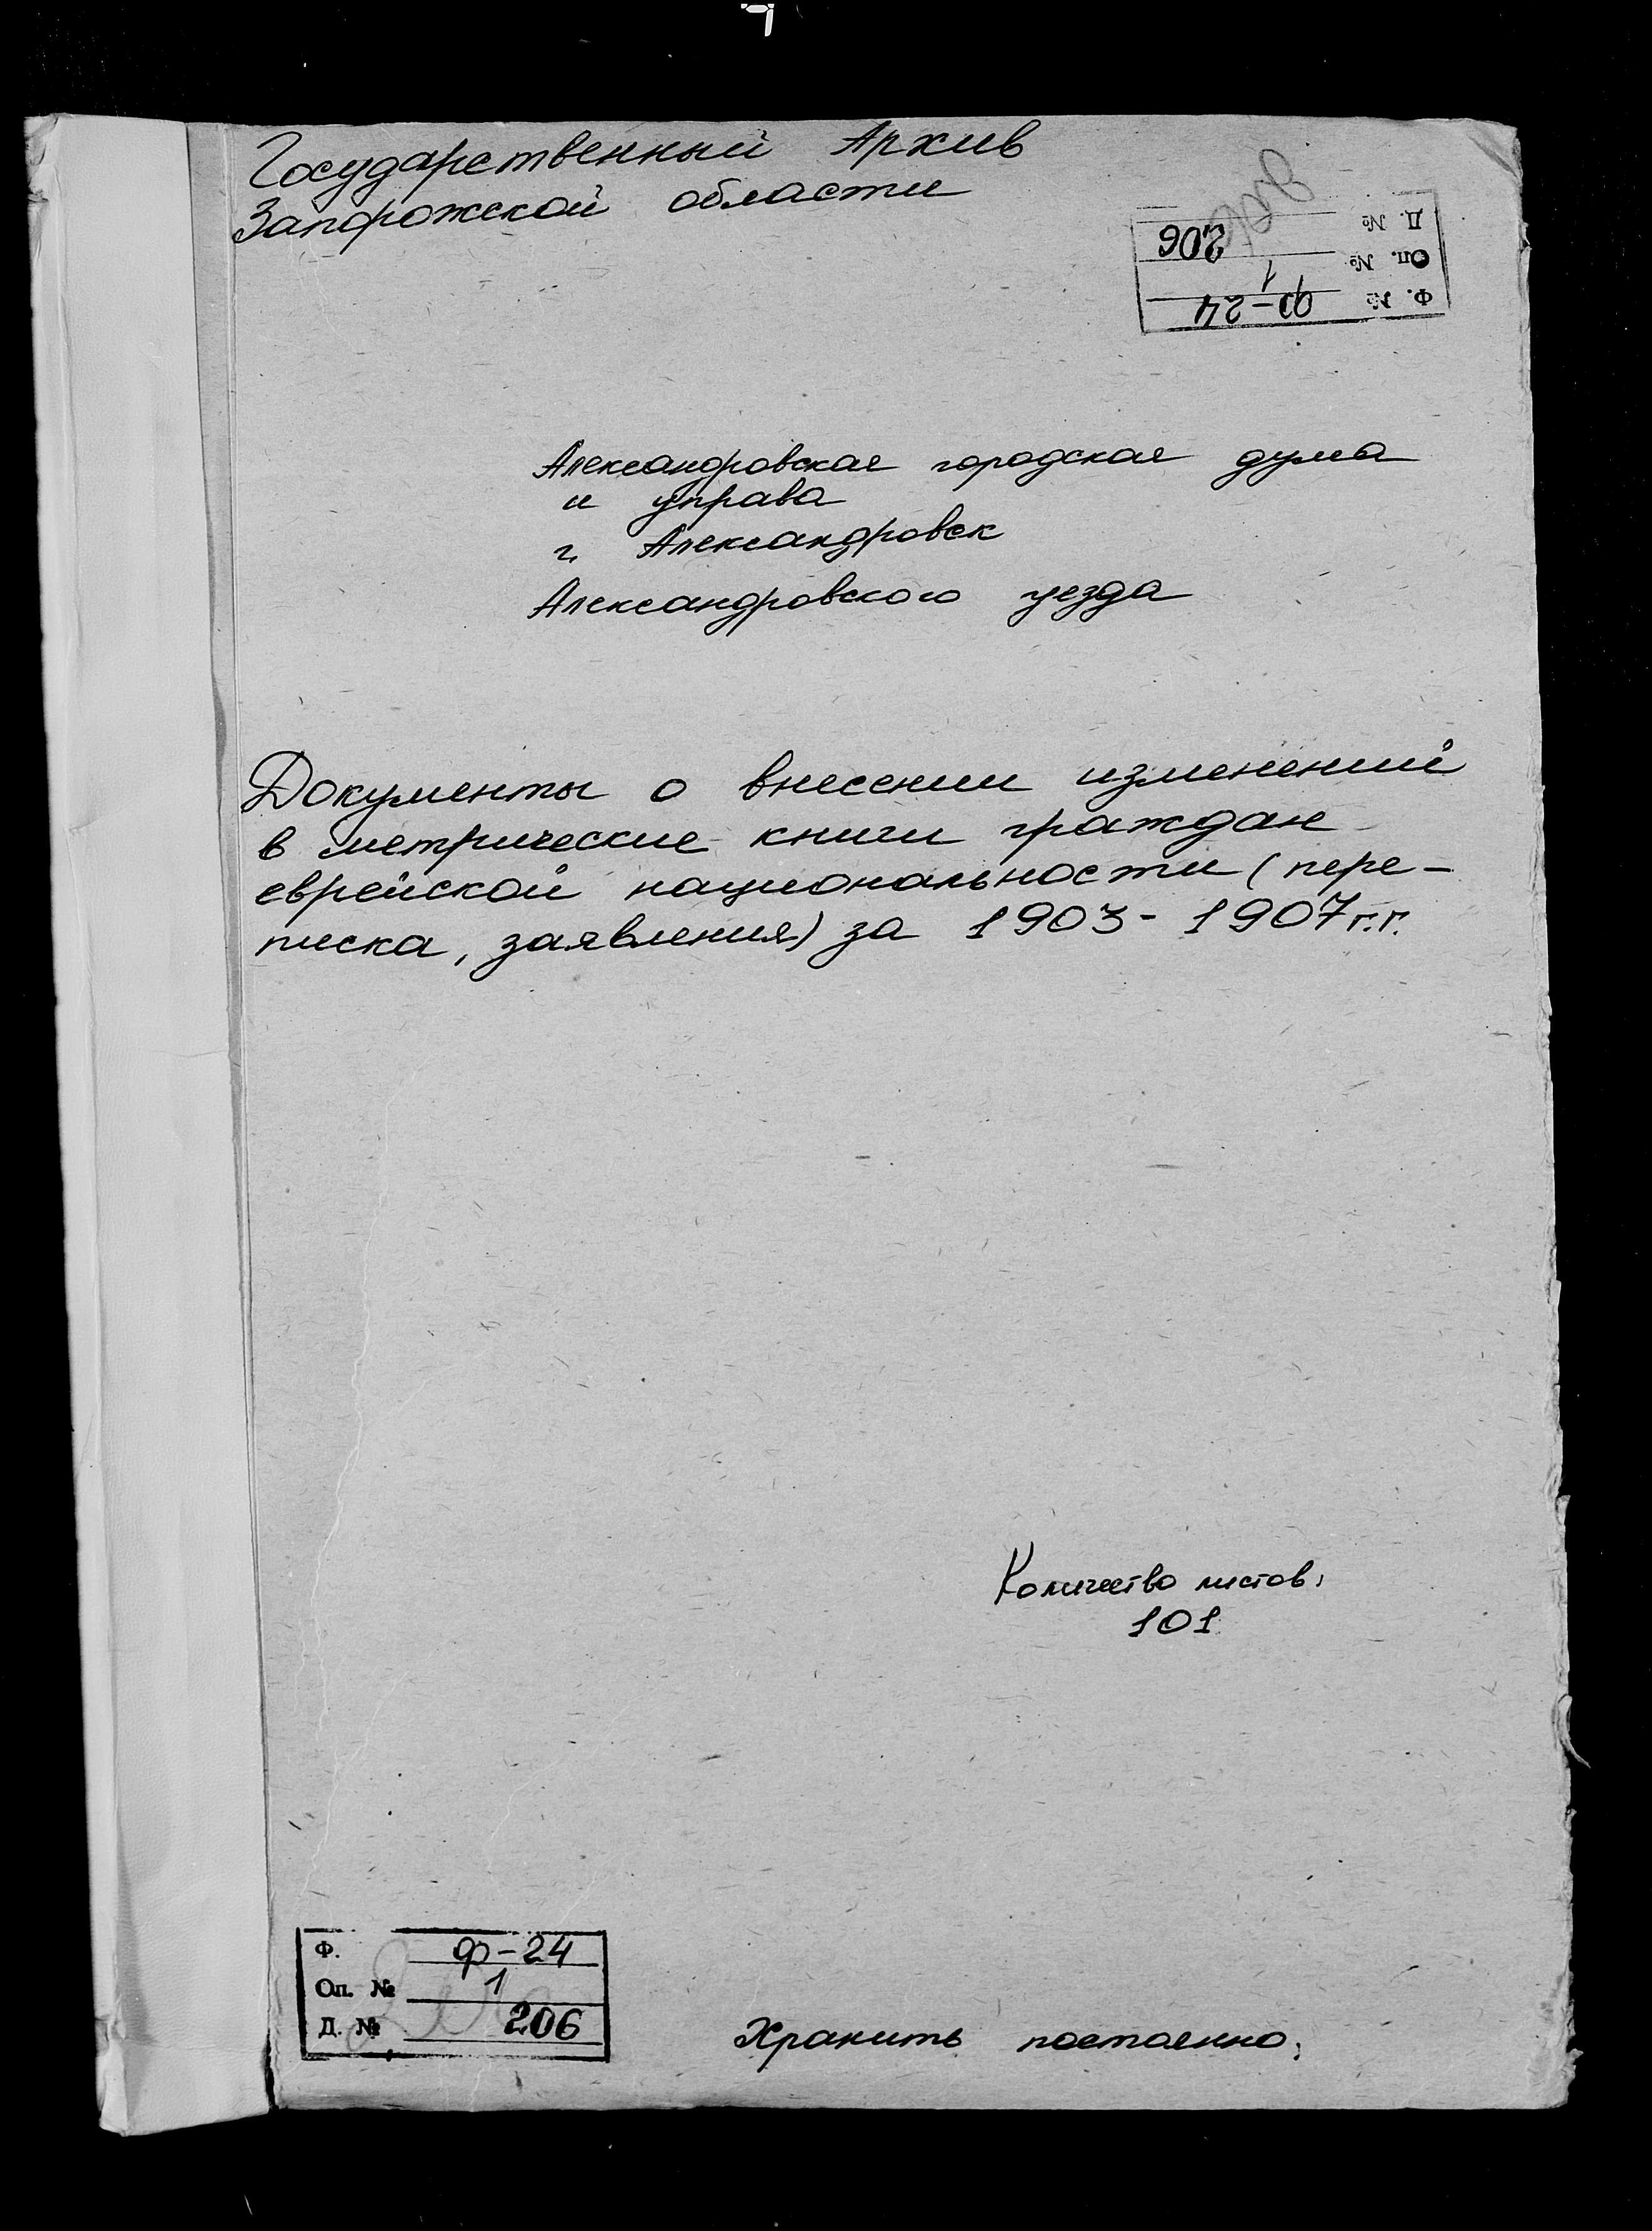 Государственный Архив
Запорожской области
Ф. № Ф-24
Оп. № 1
Д. № 206
Александровская городская дума
и управа
г. Александровск
Александровского уезда
Документы о внесении изменений
в метрические книги граждан
еврейской национальности (пере-
писка, заявления) за 1903-1907 г.г.
Количество листов:
101
Ф. Ф-24
Оп. № 1
Д. № 206
Хранить постоянно.